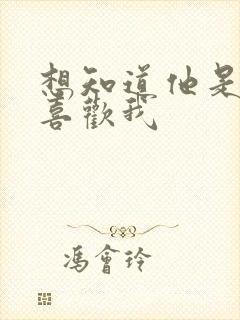 想知道他是
喜歡我
馮會玲